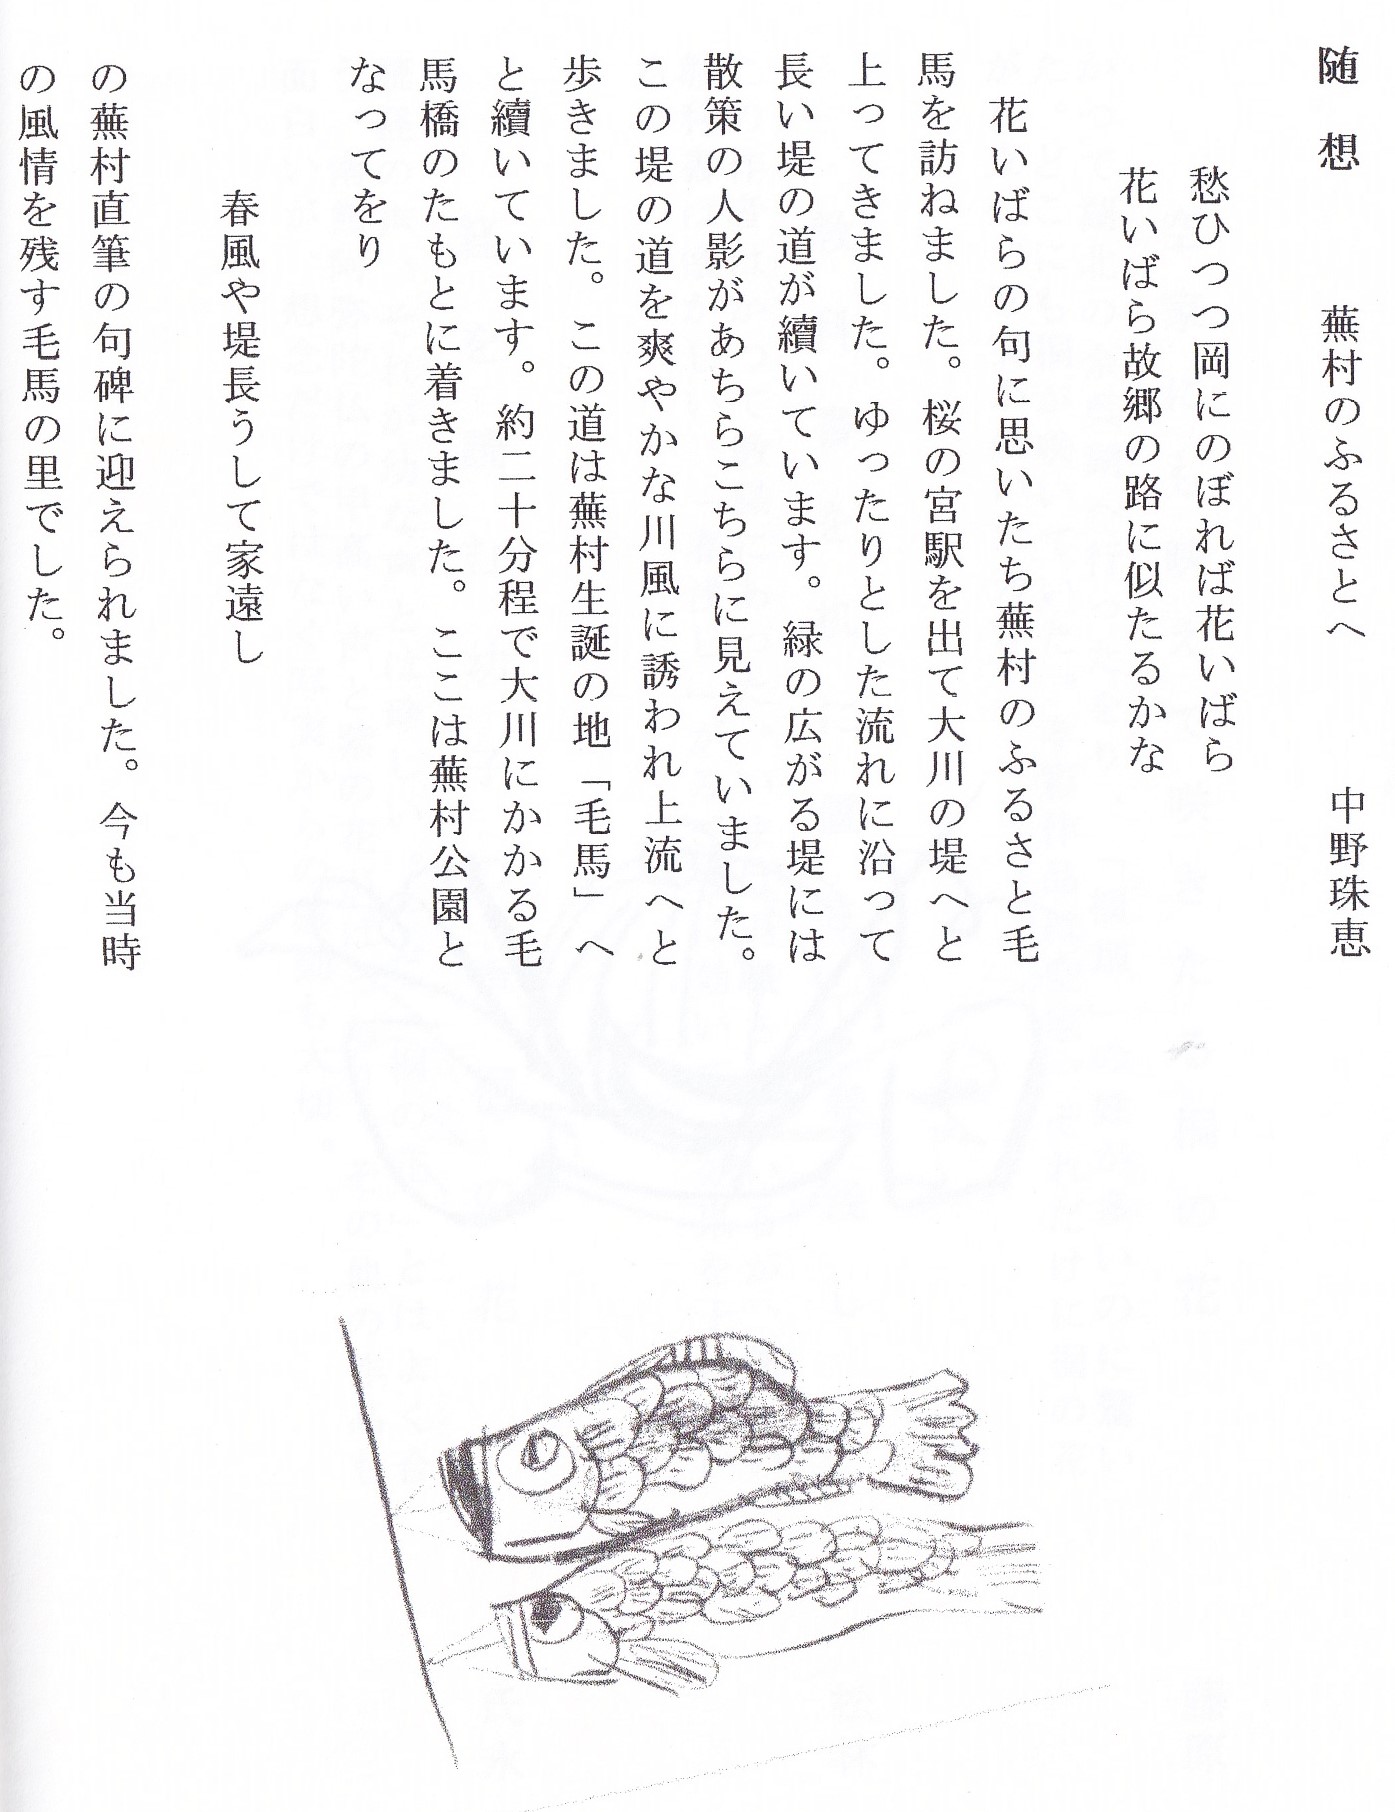 随想　蕪村のふるさとへ　中野珠恵
愁ひつつ岡にのぼれば花いばら
花いばら故郷の路に似たるかな
花いばらの句に思いたち蕪村のふるさと毛
馬を訪ねました。桜の宮駅を出て大川の堤へと
上ってきました。ゆったりとした流れに沿って
長い堤の道が續いています。緑の広がる堤には
散策の人影があちらこちらに見えていました。
この堤の道を爽やかな川風に誘われ上流へと
歩きました。この道は蕪村生誕の地「毛馬」へ
と續いています。約二十分程で大川にかかる毛
馬橋のたもとに着きました。ここは蕪村公園と
なってをり
春風や堤長うして家遠し
の蕪村直筆の句碑に迎えられました。今も当時
の風情を残す毛馬の里でした。